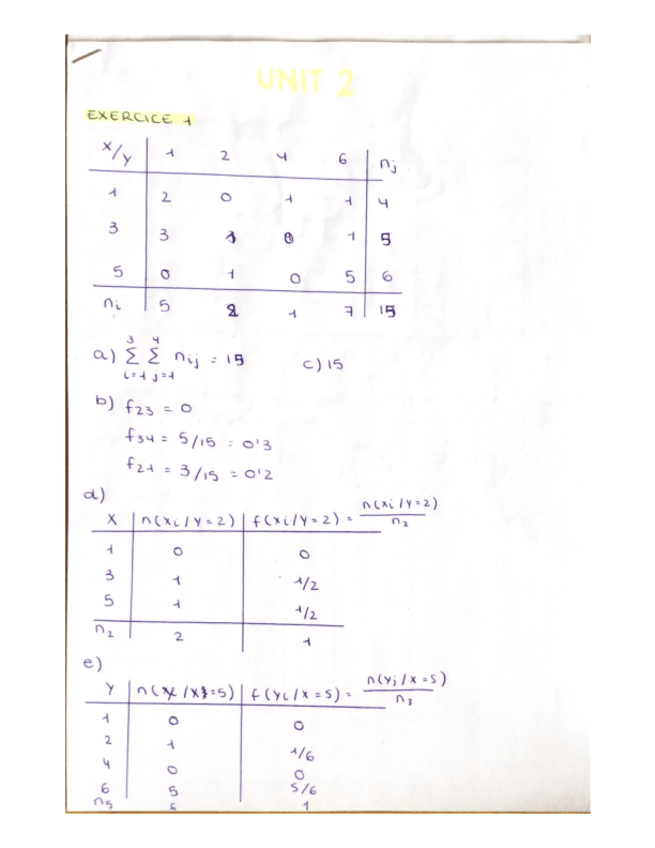 UNIT 2
EXERCICE 1
X/Y 1 2 4 6 nj
1 2 0 1 1 4
3 3 1 0 1 5
5 0 1 0 5 6
ni 5 2 1 7 15
a) 3 Σ i=1 4 Σ j=1 nij = 15 c) 15
b) f23 = 0
f34 = 5/15 = 0'3
f21 = 3/15 = 0'2
d)
X n(xi/Y=2) f(xi/Y=2) = n(xi/Y=2) / n2
1 0 0
3 1 1/2
5 1 1/2
n2 2 1
e)
Y n( /X =5) f(Yi/X=5) = n(Yj/X=5) / n3
1 0 0
2 1 1/6
4 0 0
6 5 5/6
n5 6 1